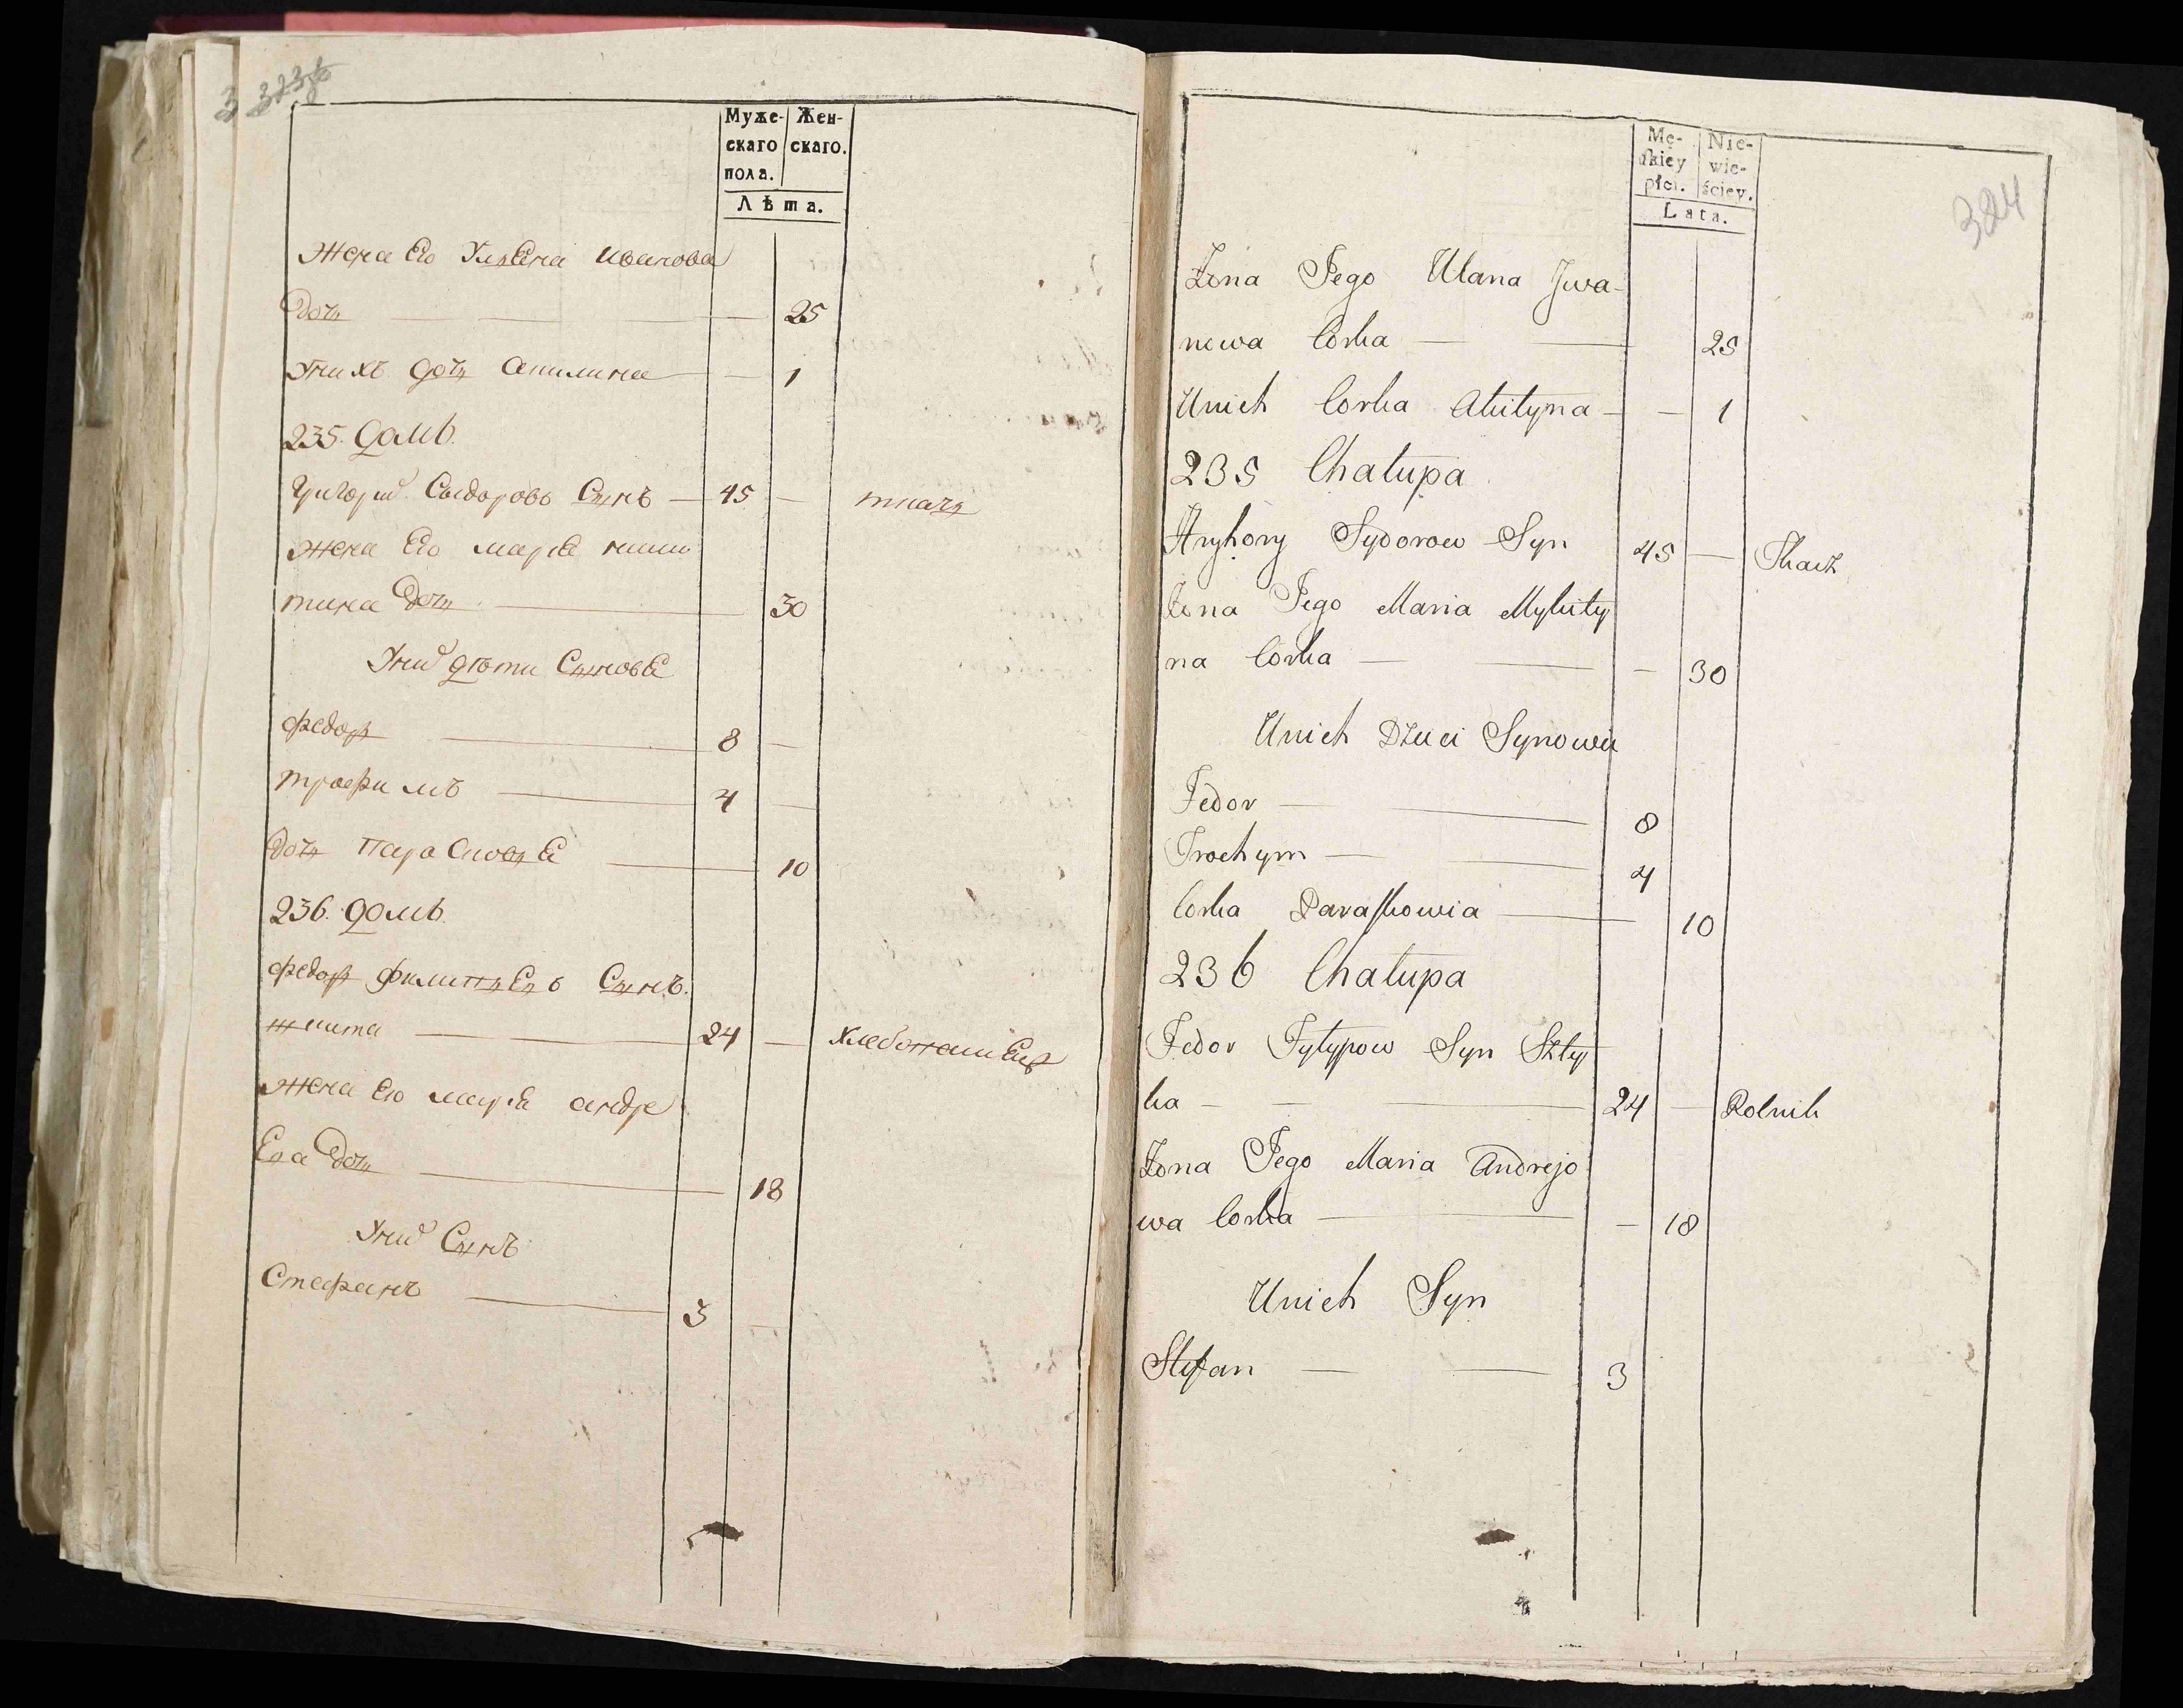 Муже-
скаго
пола.
Жен-
скаго.
Лѣта.
жена Его Ульена Иванова
дочь 25
Уних дочь Акилина 1
235. домъ.
Григорий Сыдоровъ Сынъ 45 ткачь
жена Его марья ники
тина дочь 30
Уних дѣти Сыновья
федор 8
трофимъ 4
дочь Парасковья 10
236. домъ.
федор филипьевъ Сынъ.
24 хлебопашец
жена Его марья андре
Ева дочь 18
Уних Сынъ
Стефанъ 3
384
Mę-
skiey
płci.
Nie-
wie-
ściey.
Lata.
Żona Jego Ulana Jwa-
nowa Corka 25
Unich Corka Akityna 1
235 Chałupa
Hryhory Sydorow Syn 45 Tkacz
Żona Jego Maria Mykity
na Corka 30
Unich Dzieci Synowie
Fedor 8
Trochym 4
Corka Paraskowia 10
236 Chałupa
Fedor Fylypow Syn Szty
ka 24 Rolnik
Żona Jego Maria Andrejo
wa Corka 18
Unich Syn
Stefan 3